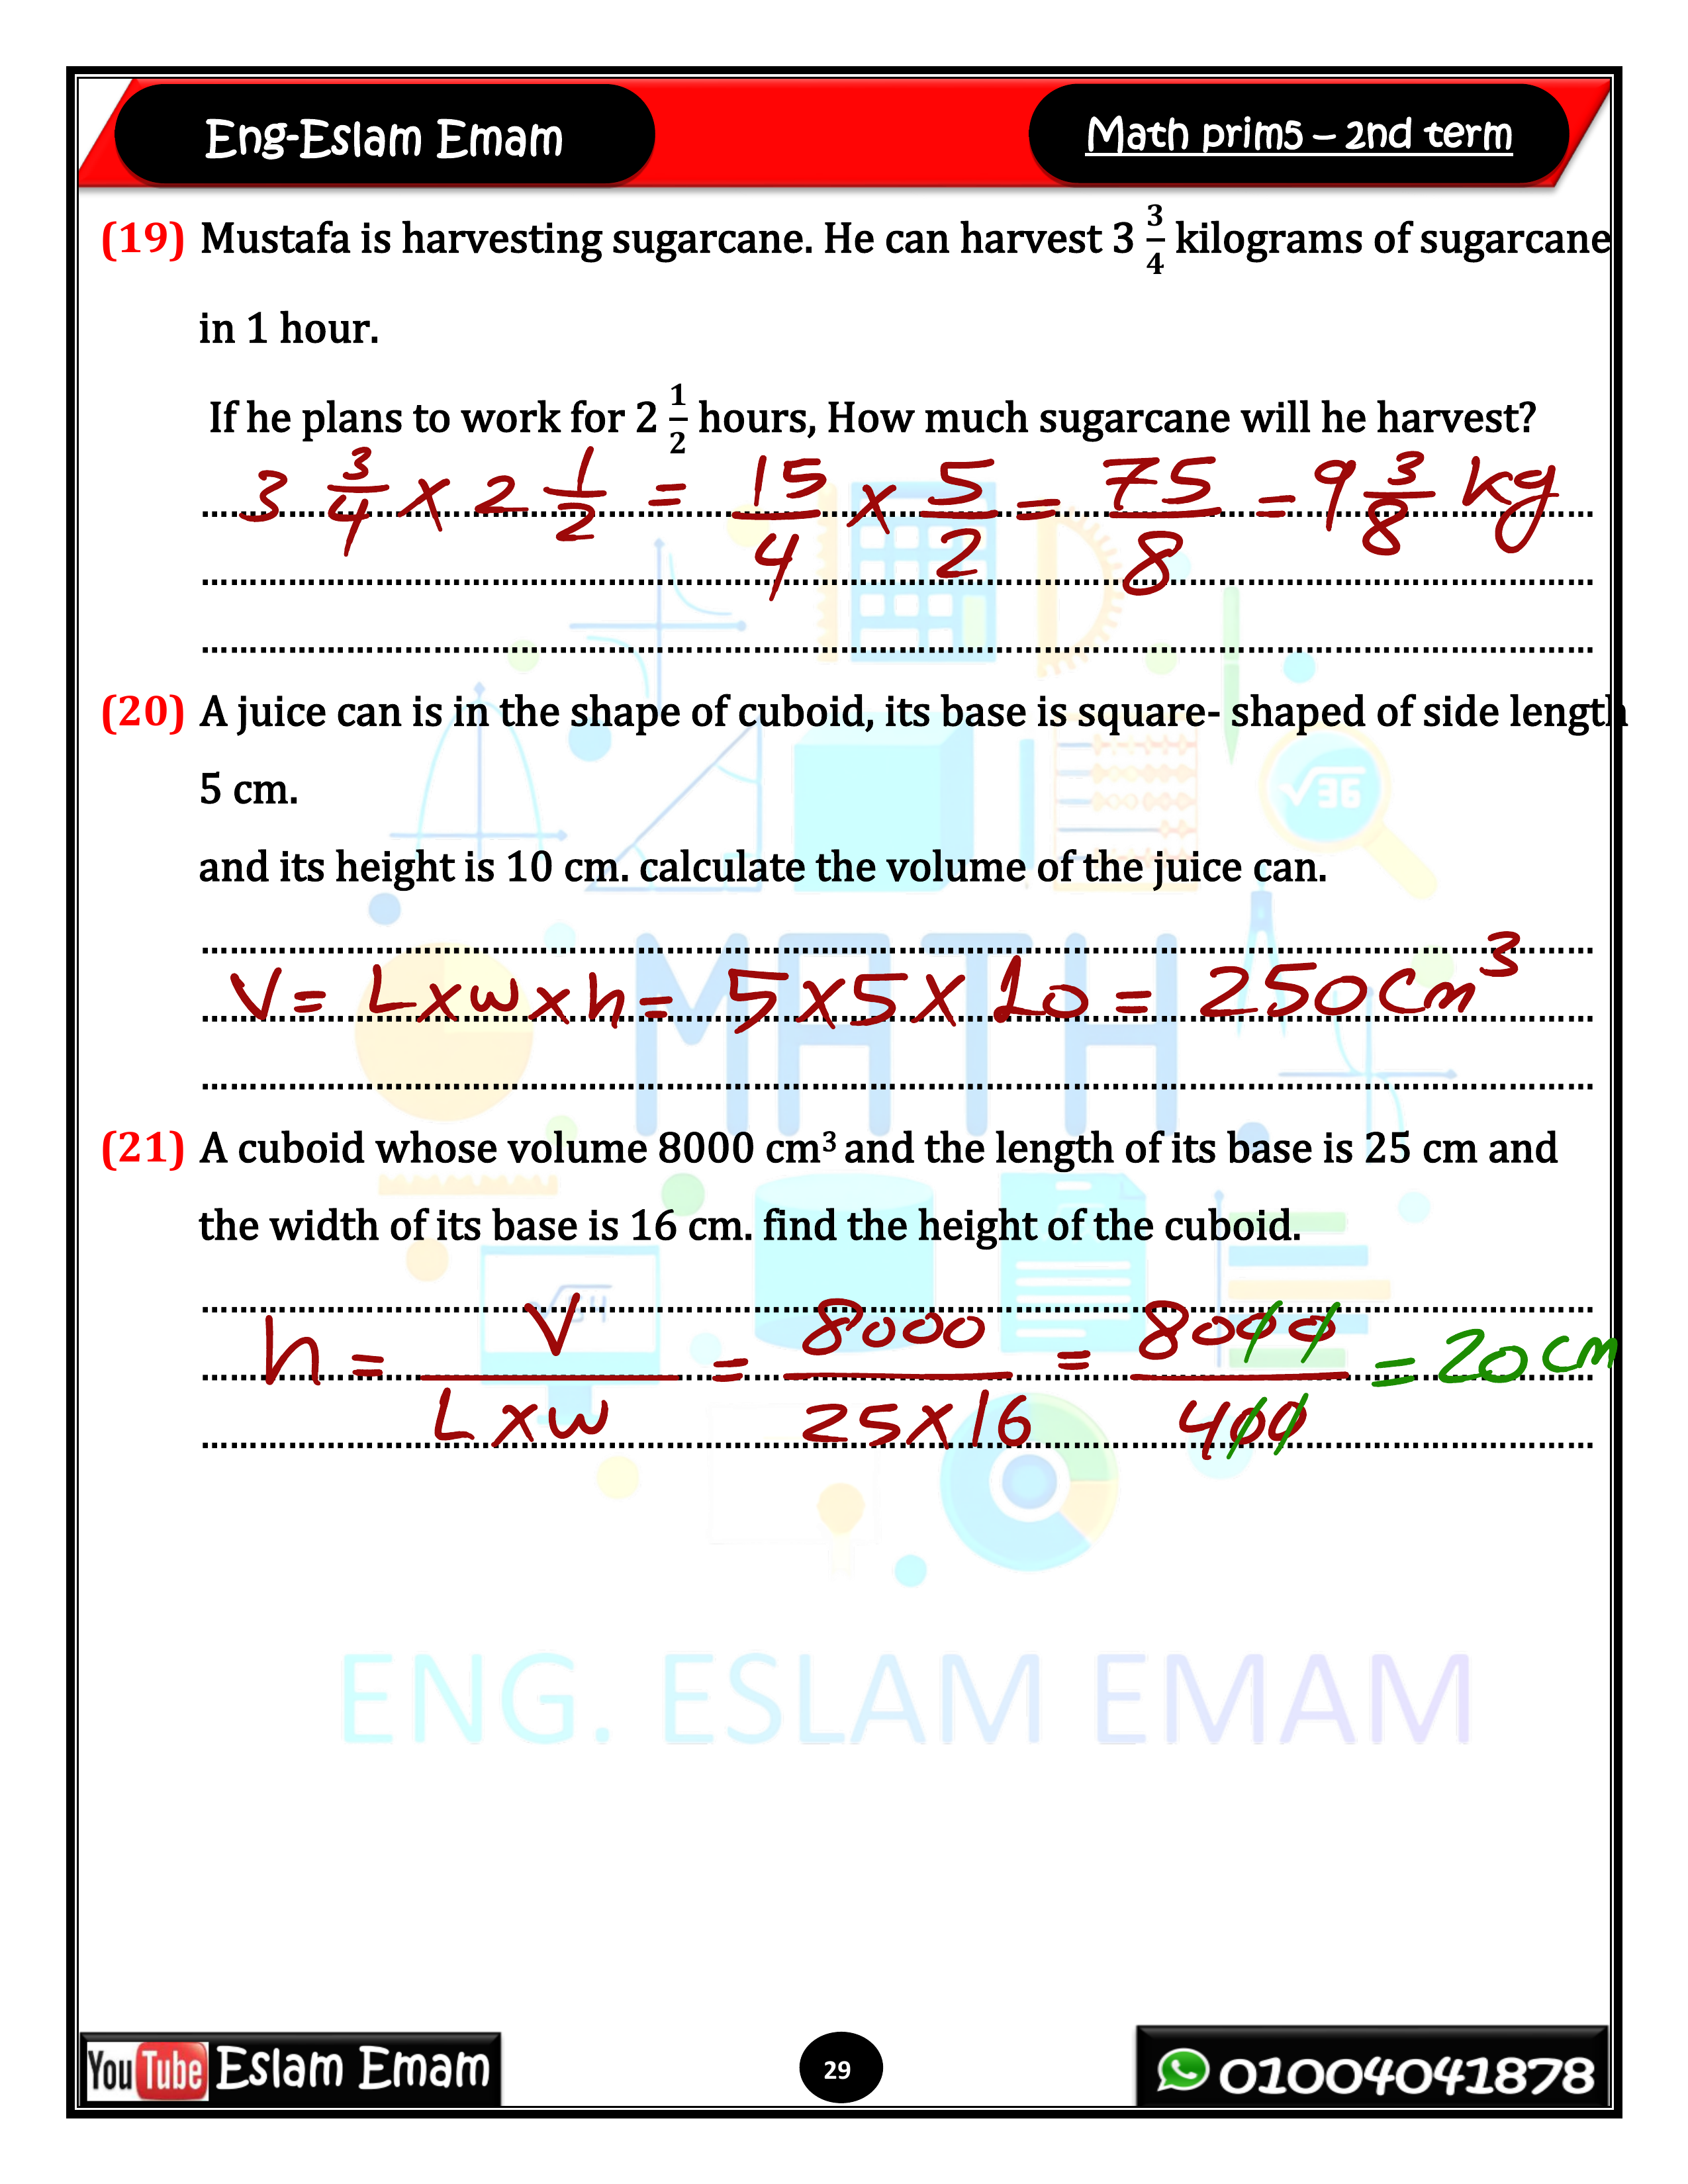 Eng-Eslam Emam
Math prim5 – 2nd term
(19) Mustafa is harvesting sugarcane. He can harvest 3 3/4 kilograms of sugarcane
in 1 hour.
If he plans to work for 2 1/2 hours, How much sugarcane will he harvest?
3 3/4 × 2 1/2 = 15/4 × 5/2 = 75/8 = 9 3/8 kg
(20) A juice can is in the shape of cuboid, its base is square- shaped of side length
5 cm.
and its height is 10 cm. calculate the volume of the juice can.
V = L × w × h = 5 × 5 × 10 = 250 cm³
(21) A cuboid whose volume 8000 cm³ and the length of its base is 25 cm and
the width of its base is 16 cm. find the height of the cuboid.
h = V / L × w = 8000 / 25 × 16 = 8000 / 400 = 20 cm
MATH
√36
ENG. ESLAM EMAM
YouTube Eslam Emam
29
01004041878